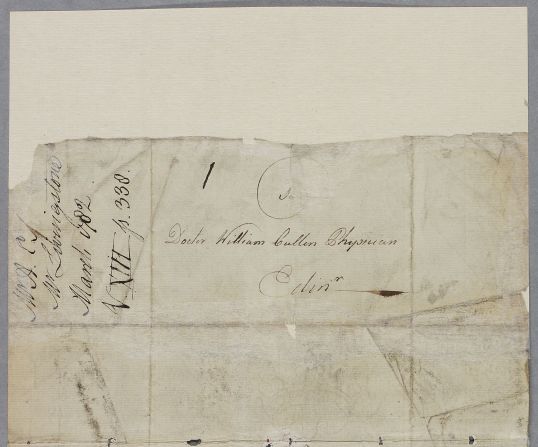 Mr Livingstone
March 1782.
V XIII p. 338.
1
To
Doctor William Cullen Physician
Edinr